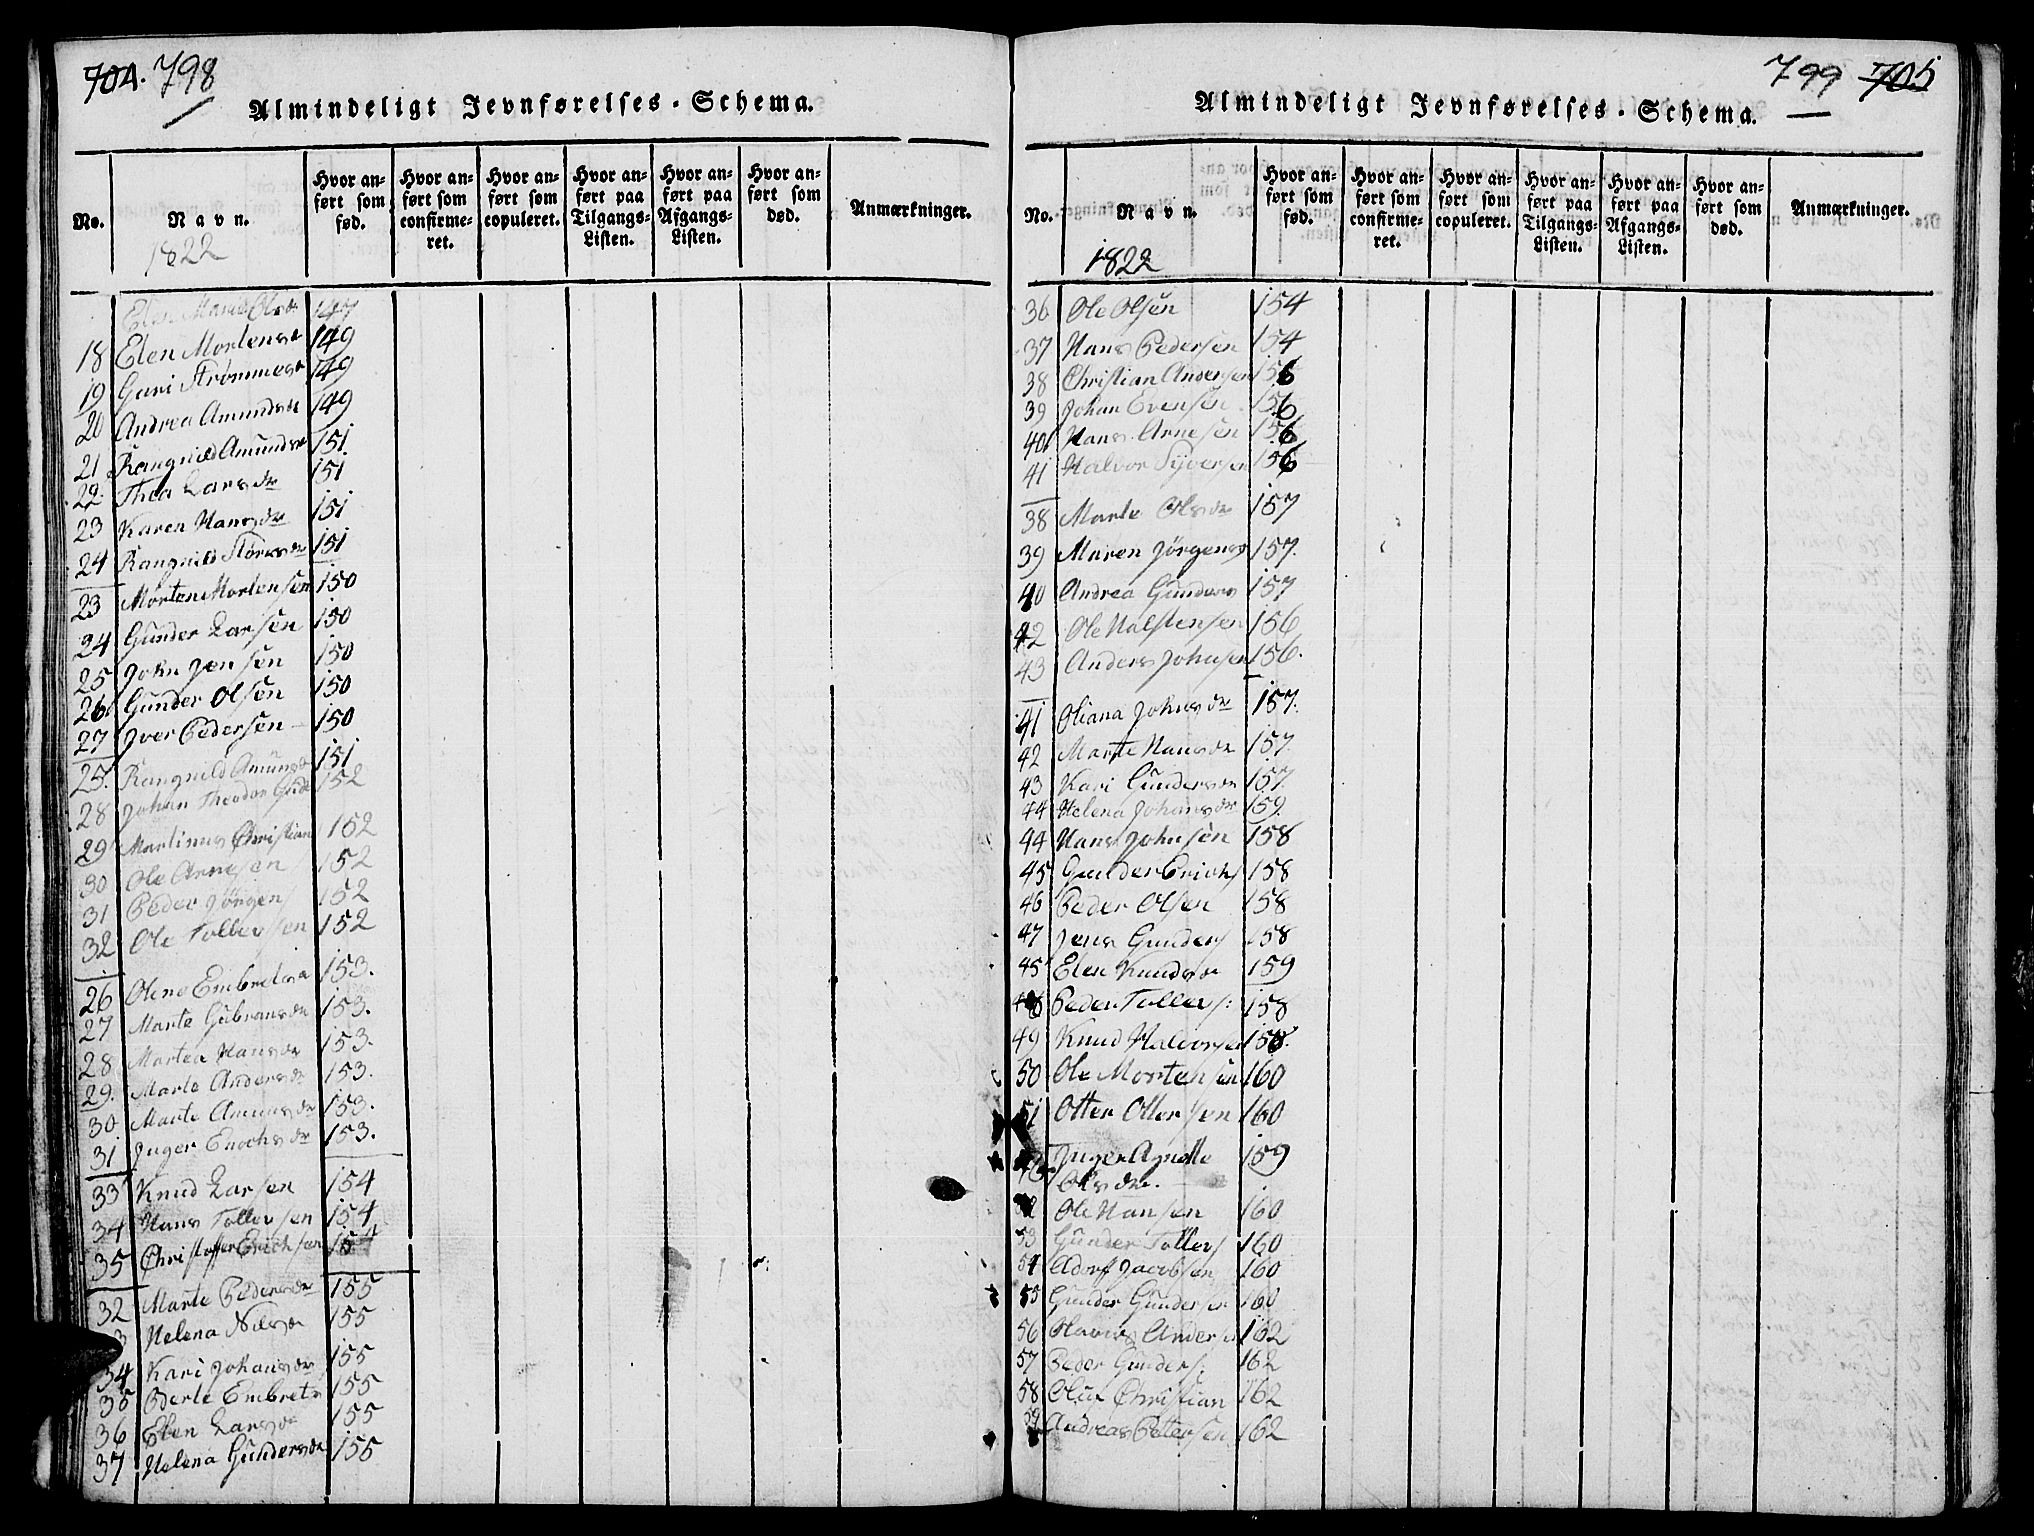 704. 798
Almindeligt Jevnførelses-Schema.
No.
Navn.
Hvor anført som fød.
Hvor anført som confirmeret.
Hvor anført som copuleret.
Hvor anført paa Tilgangs-Listen.
Hvor anført paa Afgangs-Listen.
Hvor anført som død.
Anmærkninger.
1822
Elen Marie Olsdr 147
18 Elen Mortensdr 149
19 Guri 149
20 Andrea Amundsdr 149
21 Rangnild Amundsdr 151.
22 Thea Larsdr 151
23 Karen Hansdr 151
24 Rangnild 151
23 Morten Mortensen 150
24 Gunder Larsen 150
25 John Jensen 150
26 Gunder Olsen 150
27 Jver Pedersen 150
25. Rangnild Amunsdr 151
28 Johan Theodor 152
29 Martinus Christian 152
30 Ole Arnesen 152
31 Peder Jørgens 152
32 Ole Tollevsen 152
26 Olene Embretsdr 153.
27 Marte Gubransdr 153.
28 Martea Hansdr 153.
29. Marte Andersdr 153.
30 Marte Amunsdr 153.
31 Jnger Enochsdr 153.
33 Knud Larsen 154
34 Hans Tollevsen 154
35 Christoffer Erichsen 154
32 Marte Pedersdr 155
Helena Nilsdr 155
34 Kari Johansdr 155
35 Berte Embretsdr 155
36 Elen Larsdr 155
37 Helena Gundersdr 155
799 705
Almindeligt Jevnførelses-Schema.
No.
Navn.
Hvor anført som fød.
Hvor anført som confirmeret.
Hvor anført som copuleret.
Hvor anført paa Tilgangs-Listen.
Hvor anført paa Afgangs-Listen.
Hvor anført som død.
Anmærkninger.
1822
36 Ole Olsen 154
37 Hans Pedersen 154
38 Christian Andersen 156
39 Johan Evensen 156
40 Hans Arnesen 156
41 Halvor Syversen 156
38 Marte Olsdr 157
39 Maren Jørgens 157.
40 Andrea Gunders 157
42 Ole Halstensen 156
43 Anders Johnsen 156.
41 Oliana Johnsdr 157.
42 Marte Hansdr 157.
43 Kari Gundersdr 157.
44 Helena Johansdr 159.
44 Hans Johnsen 158
45 Gulder Erichs 158
46 Peder Olsen 158
47 Jens Gunders 158
45 Elen Knudsdr 159
48 Peder Tollevs: 158
49 Knud Halvorsen 158.
50 Ole Mortensen 160
51 Otter Ottersen 160
Jnger Agnette 159
Olsdr.
Ole Hansen 160
53 Gunder Tollevs 160
54 Adorf Jacobsen 160
55 Gunder Gundersen 160
56 Olavus Anders 162
57 Peder Gunders: 162
58 Oluf Christian 162
59 Andreas Pettersen 162